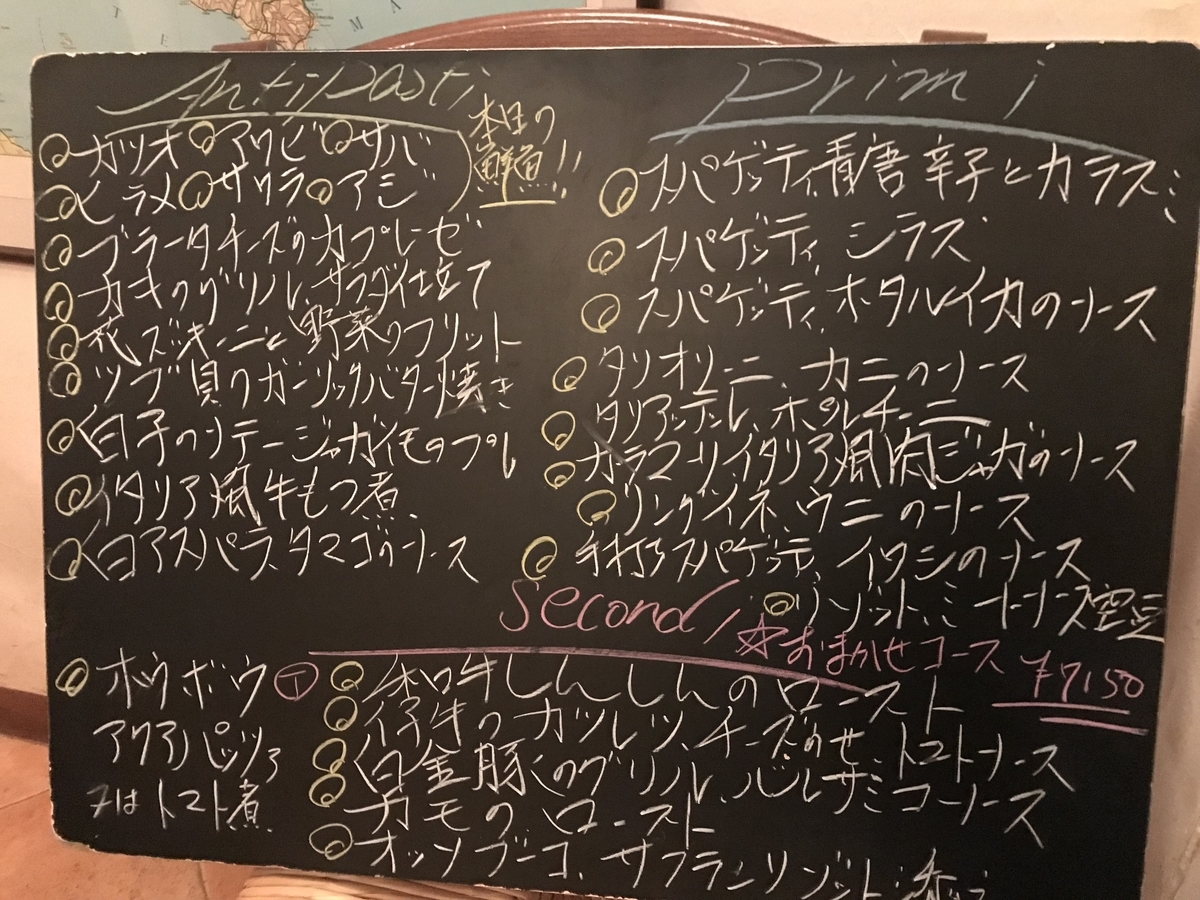 Antipasti
◎カツオ ◎アワビ ◎サバ
◎ヒラメ ◎サワラ ◎アジ
本日の
鮮魚!!
◎ブラータチーズのカプレーゼ
◎カキのグリル、サラダ仕立て
◎花ズッキーニと野菜のフリット
◎ツブ貝のガーリックバター焼き
◎白子のソテージャガイモのプレ
◎イタリア風牛もつ煮
◎白アスパラ、タマゴのソース
Primi
◎スパゲッティ、青唐辛子とカラスミ
◎スパゲッティ シラス
◎スパゲッティ、ホタルイカのソース
◎タリオリーニ、カニのソース
◎タリアッテレ、ポルチーニ
◎カラマーリイタリア風肉じゃがのソース
◎リングイネ、ウニのソース
◎手打ちスパゲッティ イワシのソース
◎リゾット、ミートソース空豆
Secondi
☆おまかせコース ¥7150
◎ホウボウ
アクアパッツァ
又はトマト煮
◎和牛しんしんのロースト
◎仔牛のカツレツ、チーズのせ、トマトソース
◎白金豚のグリル、バルサミコソース
◎カモのロースト
◎オッソブーコ、サフランリゾット添え